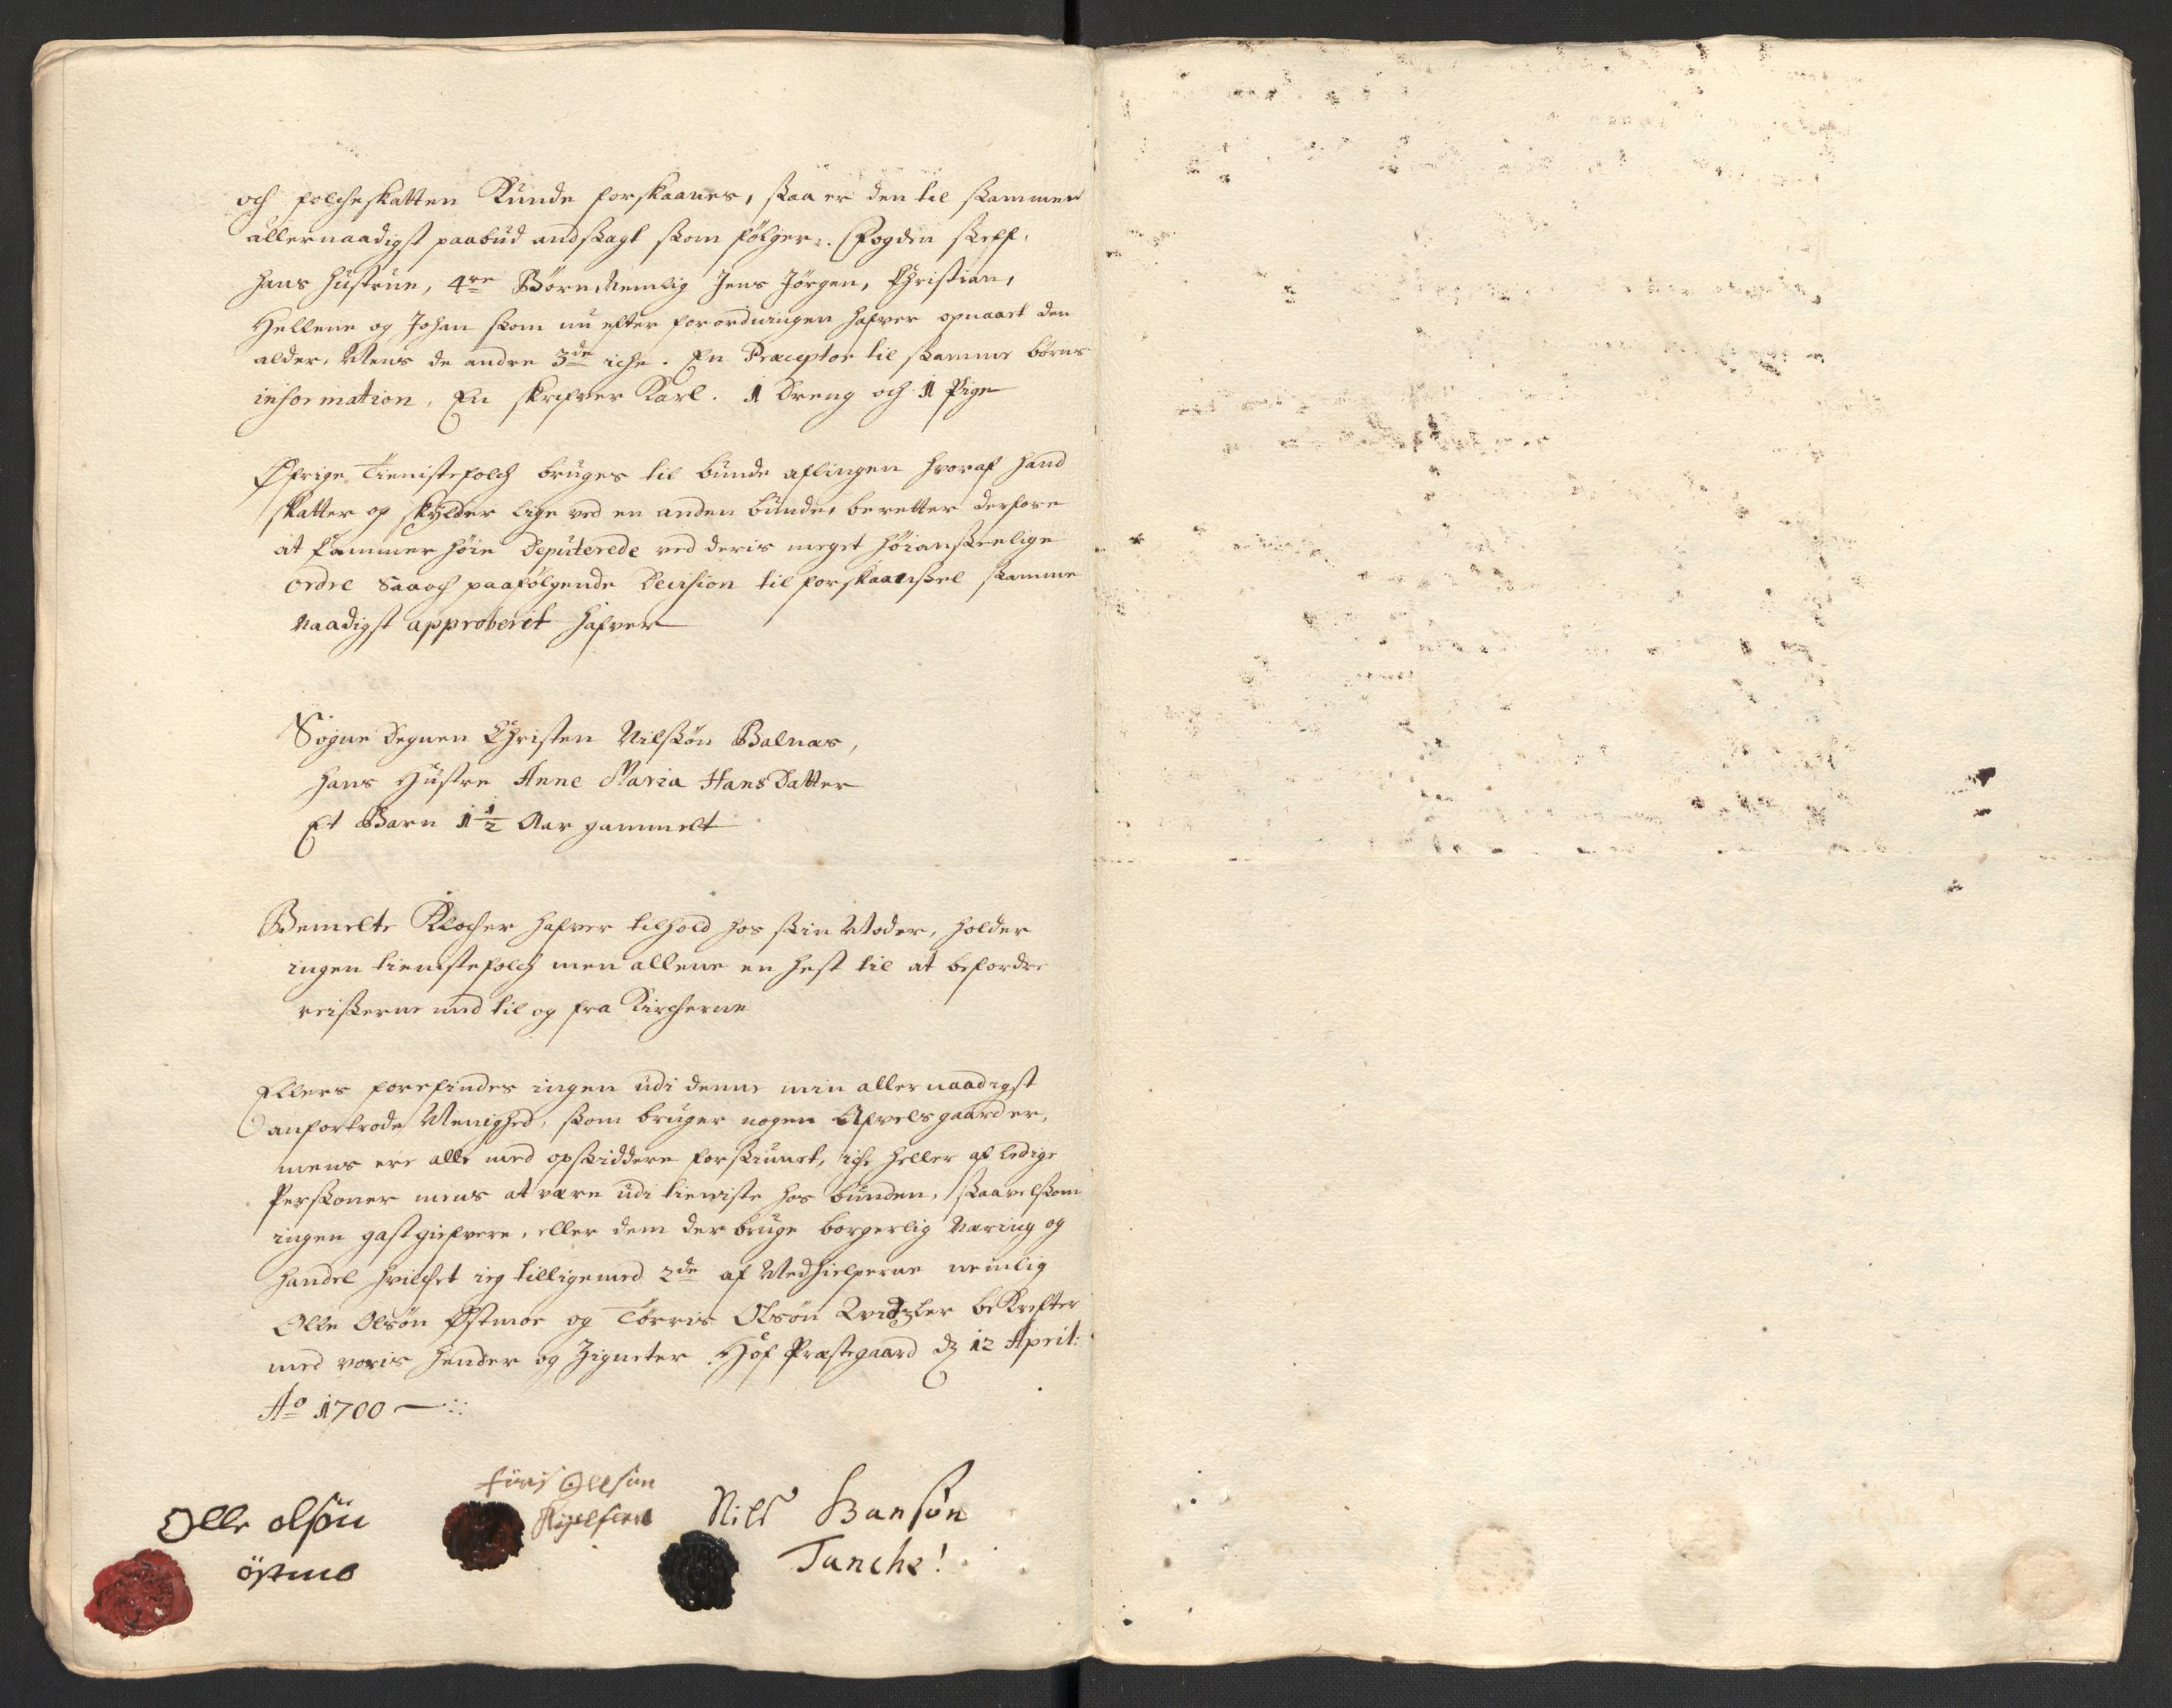 och folcheskatten Kunde forskaanes, saa er den til sammen
allernaadigst paabud andsagt som fölger: Fogden self,
hans hustrue, 4re Börn Nemlig Jens Jörgen, Christian,
Hellene og Johan som nu efter forordningen hafver opnaaet den
alder, Mens de andre 3de iche. En Præceptor til samme börns
information, En skrifver Karl. 1 Dreng och 1 Pige
Øfrige Tienistefolch bruges til bunde aflingen hvoraf hand
skatter og skylder lige ved en anden bunde, beretter derfore
at Cammer höie Deputerede ved deris meget höiansenlige
ordre saa och paafölgende Decision til forskaansel samme
naadigst approberet hafver
Sogne Degnen Christen Nilsön Balnas,
hans Hustre Anne Maria HansDatter
Et Barn 1½ Aar gammelt
Bemelte Klocher hafver tilhold hos sin Moder, holder
ingen tienistefolch men allene en hest til at befordre
reiserne med til og fra Kircherne
Ellers forefindes ingen udi denne min allernaadigst
anfortrode Menighed, som bruger nogen Afvelsgaarder,
mens ere alle med opsiddere forsiunet, iche heller af ledige
Personer mens at være udi tieniste hos bunden, saavelsom
ingen gastgiefvere, eller dem der bruge borgerlig Næring og
handel hvilchet ieg tilligemed 2de af Medhielperne nemlig
Olle Olsön Østmoe og Törris Olsön bekrefter
med voris hender og Zigneter Hof Præstegaard d 12 April:
Ao 1700
Olle olsön
östmo
törris Ollsön
Nils Hansön
Tanche!